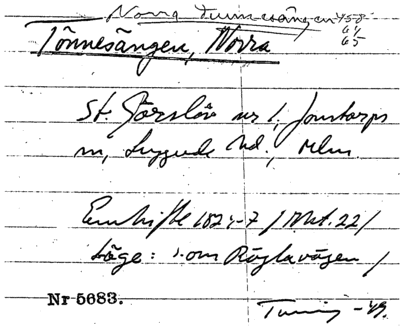 Norra Tunnesången 458-
61
65
Tönnesången, Norra
St. Görslöv nr 1, Jonstorps
sn, Luggude hd., Mlm.
Enskifte 1824-7 / Akt. 22 /
Läge: S. om Röglavägen /
Nr 5683.
Tuning -49.